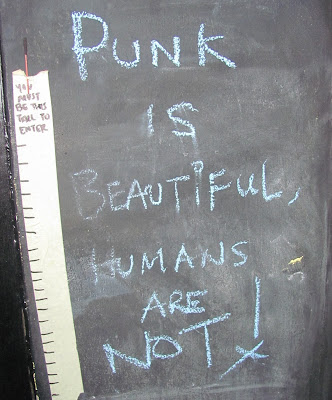 PUNK
IS
BEAUTIFUL,
HUMANS
ARE
NOT!x
YOU
MUST
BE THIS
TALL TO
ENTER